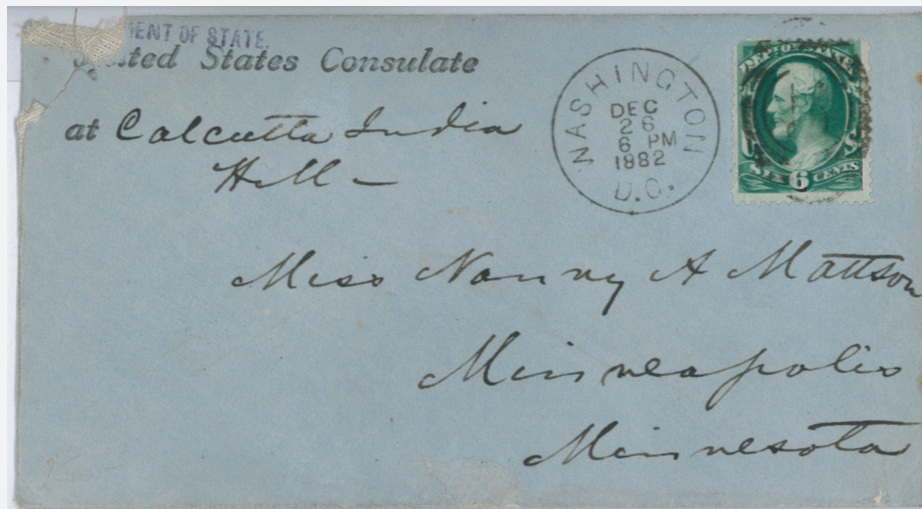 MENT OF STATE.
United States Consulate
at Calcutta India
WASHINGTON
DEC
26
6 PM
1882
D.C.
DEP'T OF STATE
SIX 6 CENTS
Miss Nanny A Mattson
Minneapolis
Minnesota